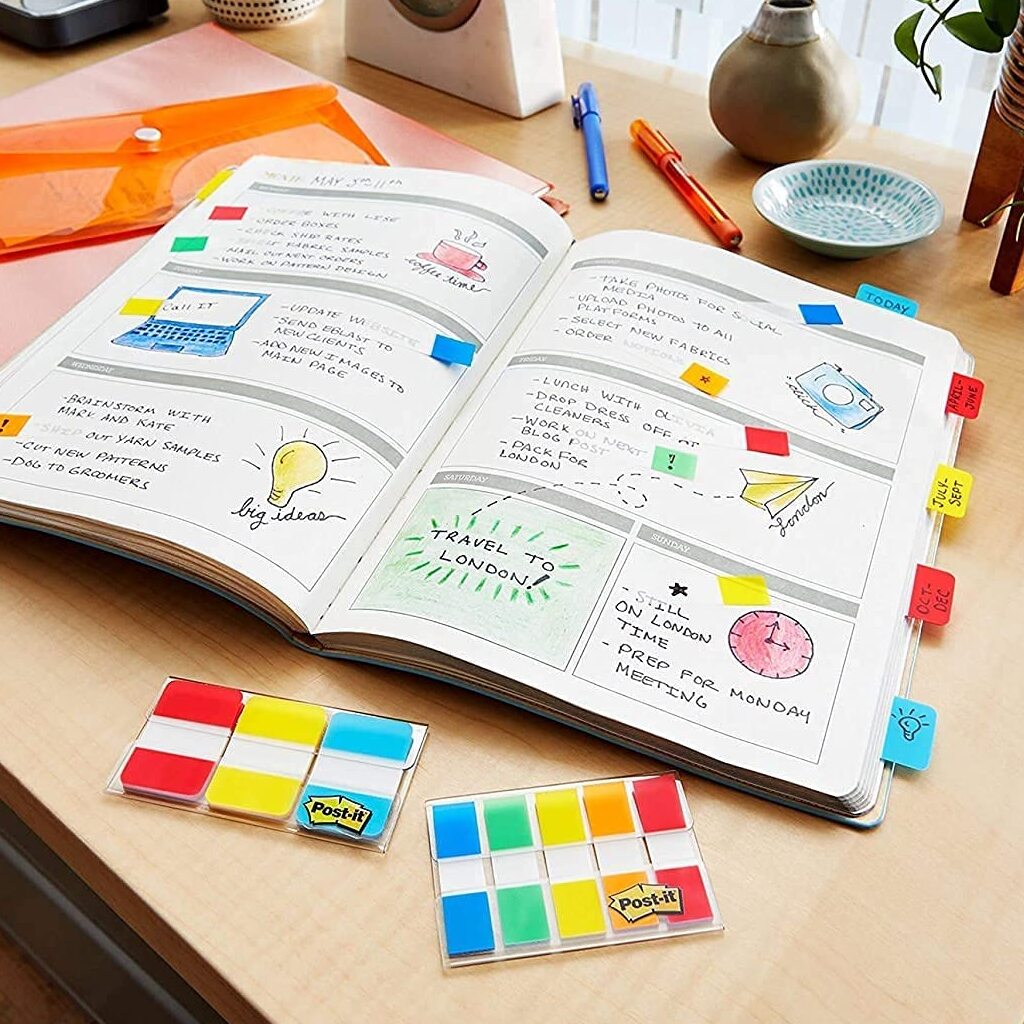 MAY 5TH-11TH
COFFEE WITH LISE
- ORDER BOXES
- CHECK SHIP RATES
FABRIC SAMPLES
- MAIL OUT NEXT ORDERS
- WORK ON PATTERN DESIGN
coffee time
Call IT
- UPDATE WEBSITE
- SEND EBLAST TO
NEW CLIENTS
- ADD NEW IMAGES TO
MAIN PAGE
WEDNESDAY
- BRAINSTORM WITH
MARK AND KATE
- SHIP OUT YARN SAMPLES
- CUT NEW PATTERNS
- DOG TO GROOMERS
!
big ideas
- TAKE PHOTOS FOR SOCIAL
MEDIA
- UPLOAD PHOTOS TO All
PLATFORMS
- SELECT NEW FABRICS
- ORDER NOTIONS
click
FRIDAY
- LUNCH WITH OLIVIA
- DROP DRESS OFF AT
CLEANERS
- WORK ON NEXT
BLOG POST
- PACK FOR
LONDON
!
london
SATURDAY
TRAVEL TO
LONDON!
SUNDAY
- STILL
ON LONDON
TIME
- PREP FOR MONDAY
MEETING
TODAY
APRIL-
JUNE
JULY-
SEPT
OCT-
DEC
Post-it
Post-it